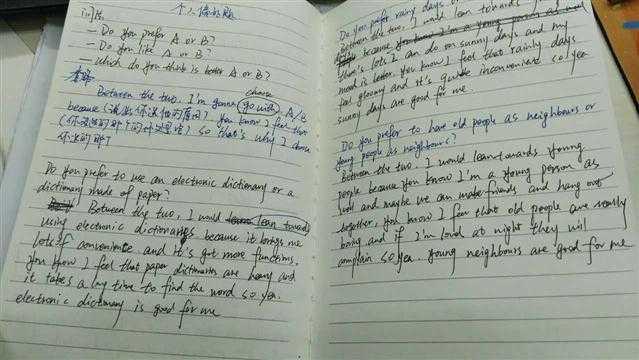 问法 个人偏好题
— Do you prefer A or B?
— Do you like A or B?
— which do you think is better A or B?
答路
choose
Between the two, I'm gonna go with A/B
because (说出你决定的原因), you know I feel that
so that's why I choose
Do you prefer to use an electronic dictionary or a
dictionary made of paper?
Between the two, I would lean towards
using electronic dictionaries because it brings me
lots of convenience and it's got more functions.
You know I feel that paper dictionaries are heavy and
it takes a long time to find the word so yea.
electronic dictionary is good for me
Do you prefer rainy days or
Between the two, I would lean towards
because you know I'm a young person as
that's lots I can do on sunny days and my
mood is better. You know I feel that rainly days
feel gloomy and it's quite inconvenient so yea
sunny days are good for me
Do you prefer to have old people as neighbours or
young people as neighbours?
Between the two I would lean towards young
people because you know I'm a young person as
well and maybe we can make friends and hang out
together, you know I feel that old people are really
boring and if I'm loud at night they will
complain so yea young neighbours are good for me